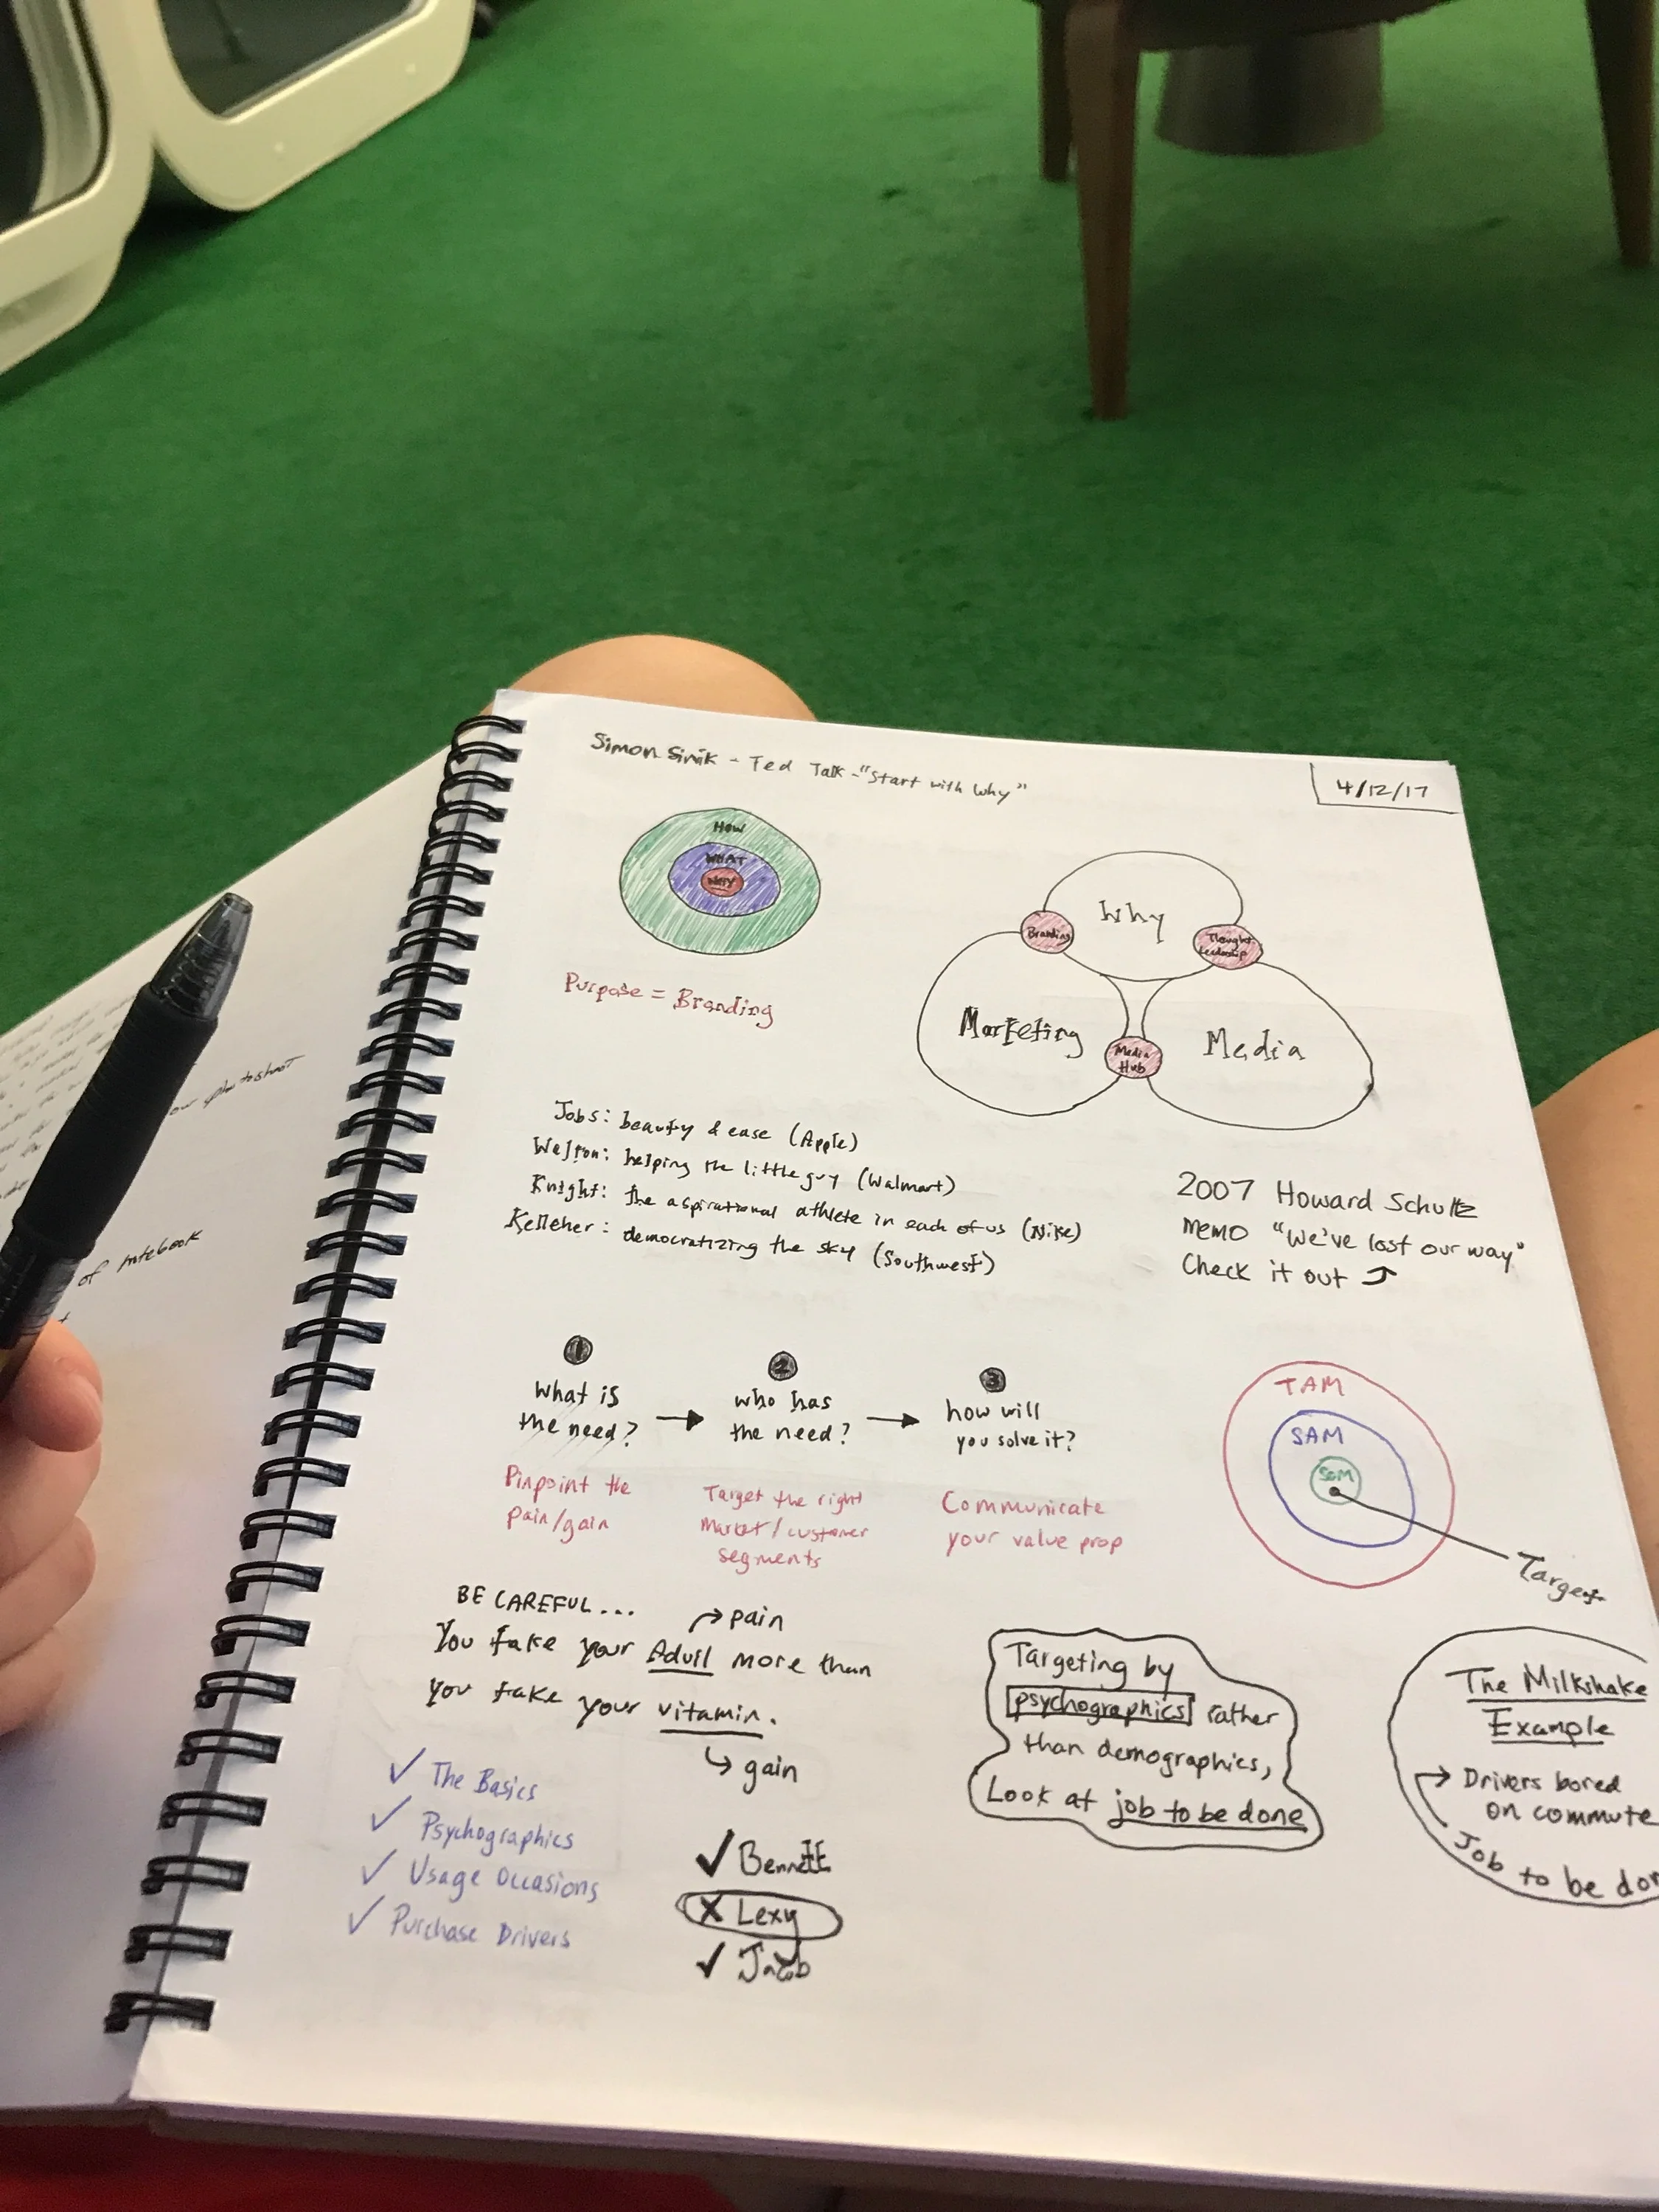 Simon Sinik - Ted Talk - "Start with Why"
4/12/17
HOW
WHAT
WHY
Purpose = Branding
Why
Branding
Thought Leadership
Marketing
Media
Media Hub
Jobs: beauty & ease (Apple)
Walton: helping the little guy (Walmart)
Knight: the aspirational athlete in each of us (Nike)
Kelleher: democratizing the sky (Southwest)
2007 Howard Schultz
MEMO "We've lost our way"
Check it out
1
What is
the need?
2
who has
the need?
3
how will
you solve it?
Pinpoint the
pain/gain
Target the right
Market/customer
segments
Communicate
your value prop
TAM
SAM
SOM
Target
BE CAREFUL...
pain
You take your Advil more than
you take your vitamin.
gain
✓ The Basics
✓ Psychographics
✓ Usage Occasions
✓ Purchase Drivers
✓ Bennett
X Lexy
✓ Jacob
Targeting by
psychographics rather
than demographics,
Look at job to be done
The Milkshake
Example
Drivers bored
on commute
Job to be don
photoshoot
of notebook